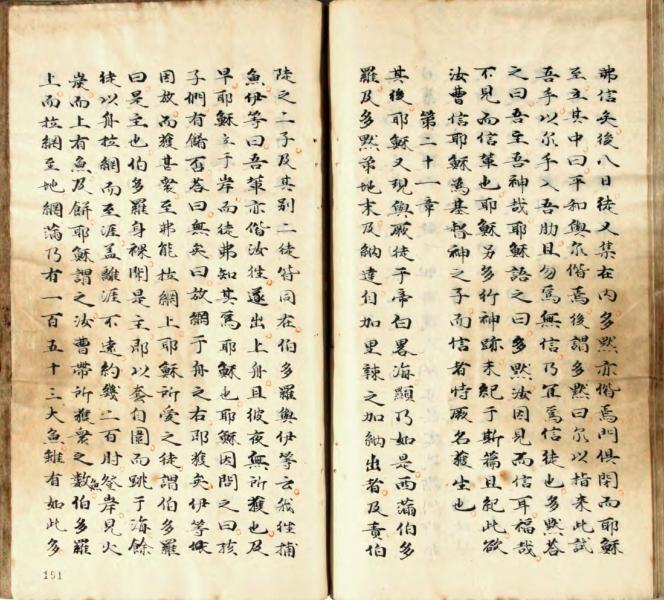 弗信矣後八日徒又集在內多默亦偕焉門俱閉而耶穌
至立其中曰平和與尔偕焉後謂多默曰尔以指來此試
吾手以尔手入吾肋且勿爲無信乃宜爲信徒也多默荅
之曰吾主吾神哉耶穌語之曰多默汝因見而信耳福哉
不見而信輩也耶穌另多行神跡未紀于斯篇且紀此欲
汝曹信耶穌爲基督神之子而信者恃厥名獲生也
第二十一章
其後耶穌又現與厥徒于帝白畧海顯乃如是西滿伯多
羅及多默第地末及納達自加里辣之加納出者及責伯
陡之二子及其別二徒偕同在伯多羅與伊等云我徃捕
魚伊等曰吾輩亦偕汝徃遂出上舟且彼夜無所獲也及
早耶穌立于岸而徒弗知其爲耶穌也耶穌因問之曰孩
子們有餚否荅曰無矣曰放網于舟之右即獲矣伊等
因放而獲甚衆至弗能拉網上耶穌所愛之徒謂伯多羅
曰是主也伯多羅身裸聞是主郎以套自圍而跳于海餘
徒以舟拉網而至涯盖離涯不遠約幾二百肘登岸見火
炭而上有魚及餅耶穌謂之汝曹帶所獲衆之魚數伯多羅
上而拉網至地網滿乃有一百五十三大魚雖有如此多
191